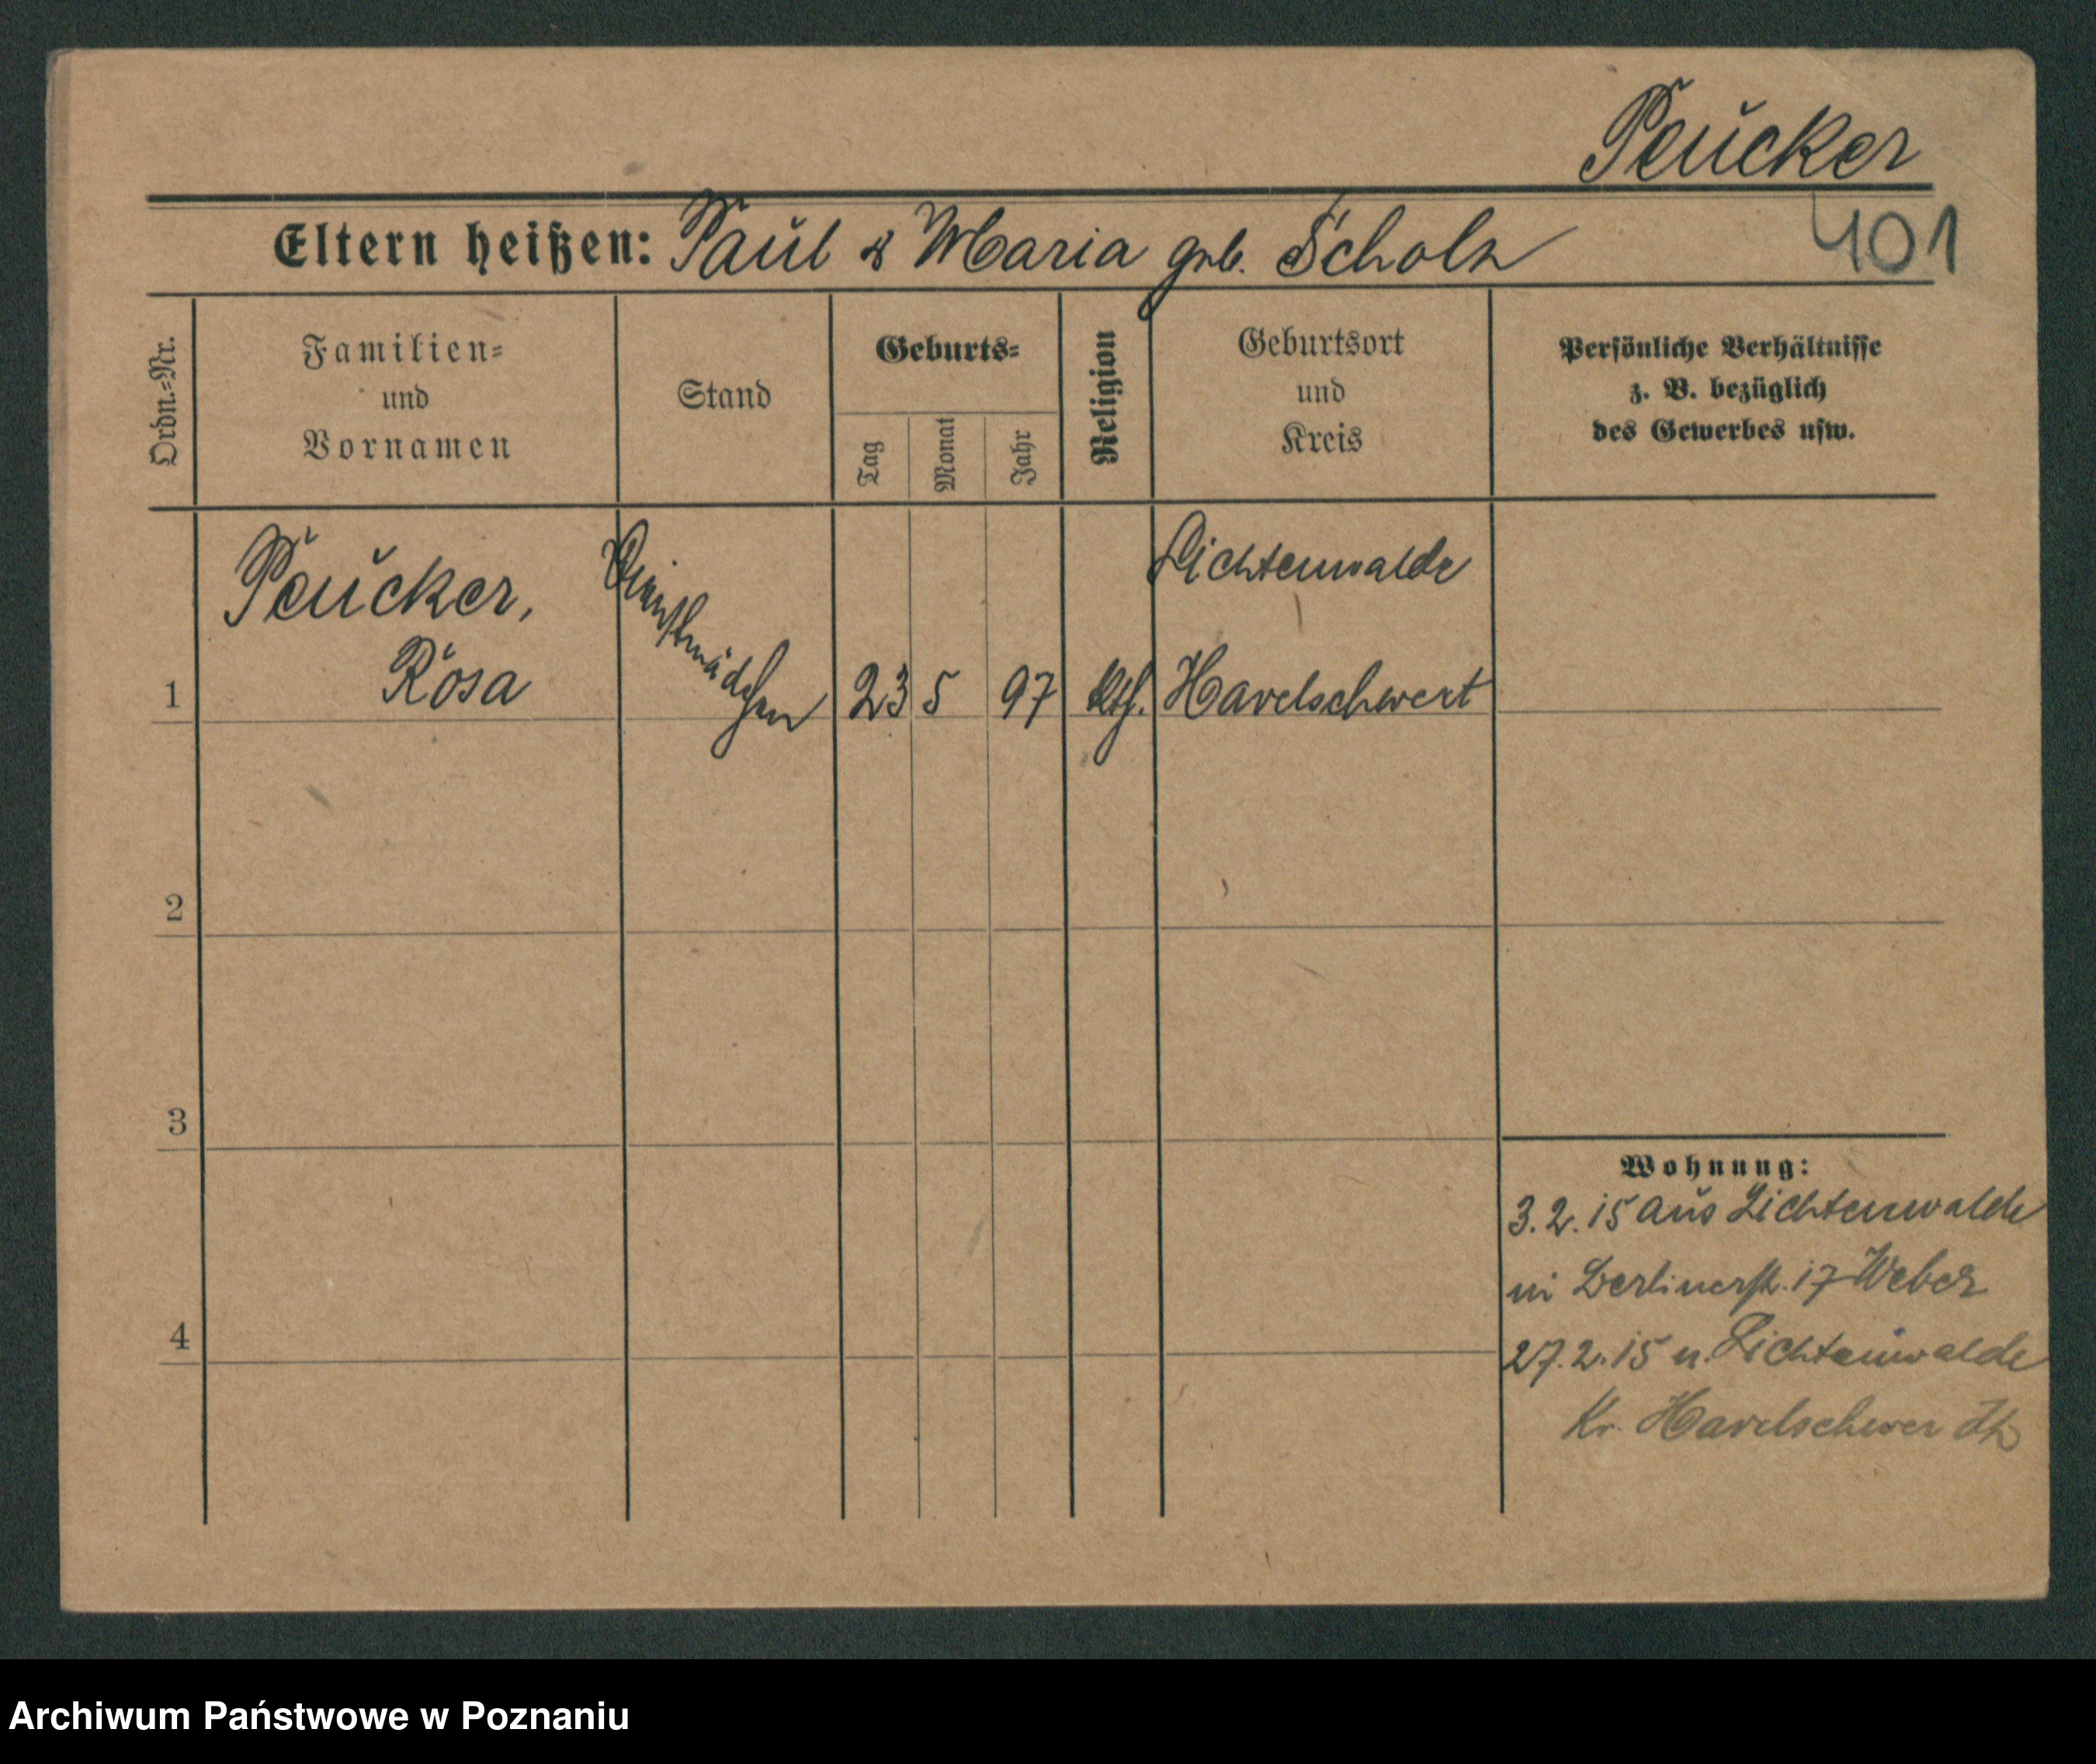 Peucker
Eltern heißen: Paul & Maria geb. Scholz
401
Ordn.-Nr.
Familien-
und
Vornamen
Stand
Geburts-
Tag
Monat
Jahr
Religion
Geburtsort
und
Kreis
Persönliche Verhältnisse
z. B. bezüglich
des Gewerbes usw.
1
Peucker,
Rosa
Dienstmädchen
23
5
97
kth.
Lichtenwalde
Havelschwert
2
3
4
Wohnung:
3.2.15 aus Lichtenwalde
in Berlinerstr. 17 Weber
27.2.15 n. Lichtenwalde
Kr. Havelschwer
Archiwum Państwowe w Poznaniu